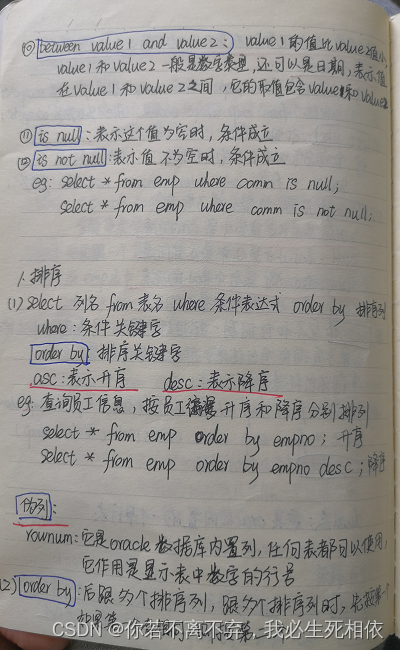 ⑩ between value1 and value2: value1的值比value2值小
value1和value2一般是数字类型,还可以是日期,表示值
在value1和value2之间,它的取值包含value1和value2
⑪ is null:表示这个值为空时,条件成立
⑫ is not null:表示值不为空时,条件成立
eg: select * from emp where comm is null;
select * from emp where comm is not null;
1.排序
(1) select 列名 from 表名 where 条件表达式 order by 排序列
where:条件关键字
order by:排序关键字
asc:表示升序 desc:表示降序
eg:查询员工信息,按员工编号升序和降序分别排列
select * from emp order by empno; 升序
select * from emp order by empno desc;降序
伪列:
rownum:它是oracle数据库内置列,任何表都可以使用,
它作用是显示表中数字的行号
(2) order by:后跟多个排序列,跟多个排序列时,先
CSDN @你若不离不弃,我必生死相依